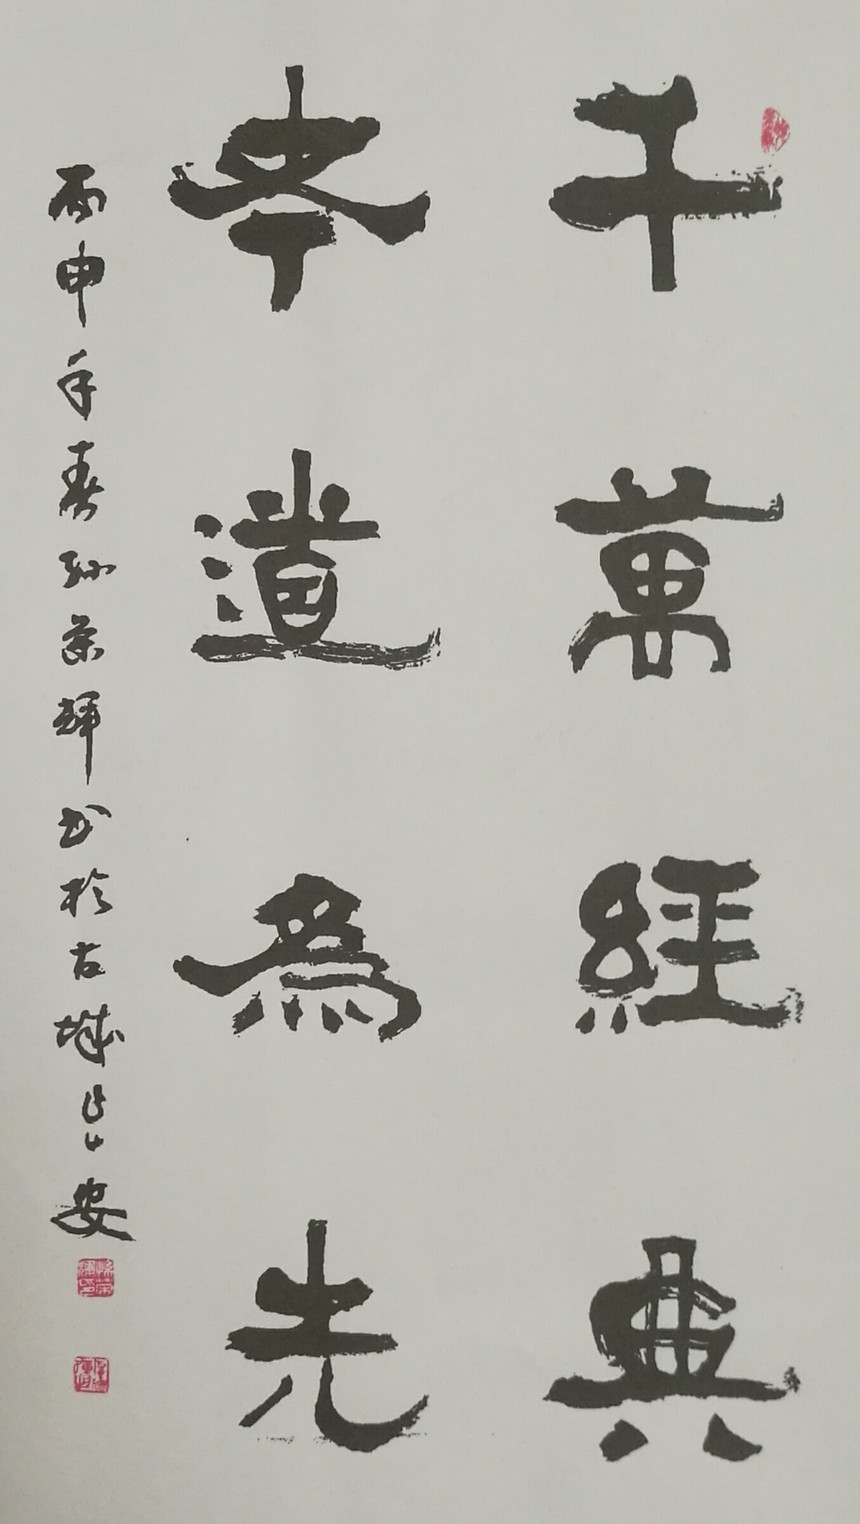 千萬經典
孝道為先
丙申年春孙荣輝书於古城长安